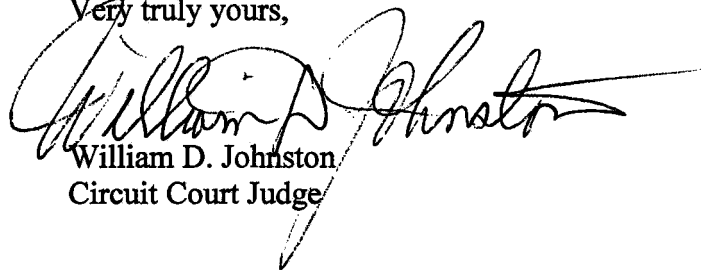 Very truly yours,
William D. Johnston
William D. Johnston
Circuit Court Judge